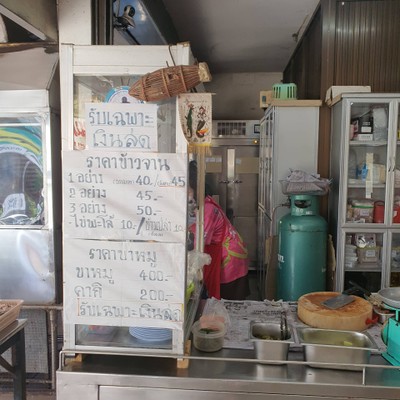 รับเฉพาะ
เงินสด
ราคาข้าวจาน
1 อย่าง 40./ 45
2 อย่าง 45.-
3 อย่าง 50.-
ไข่พะโล้ 10.-
ราคาขาหมู
ขาหมู 400.-
คากิ 200.-
รับเฉพาะเงินสด